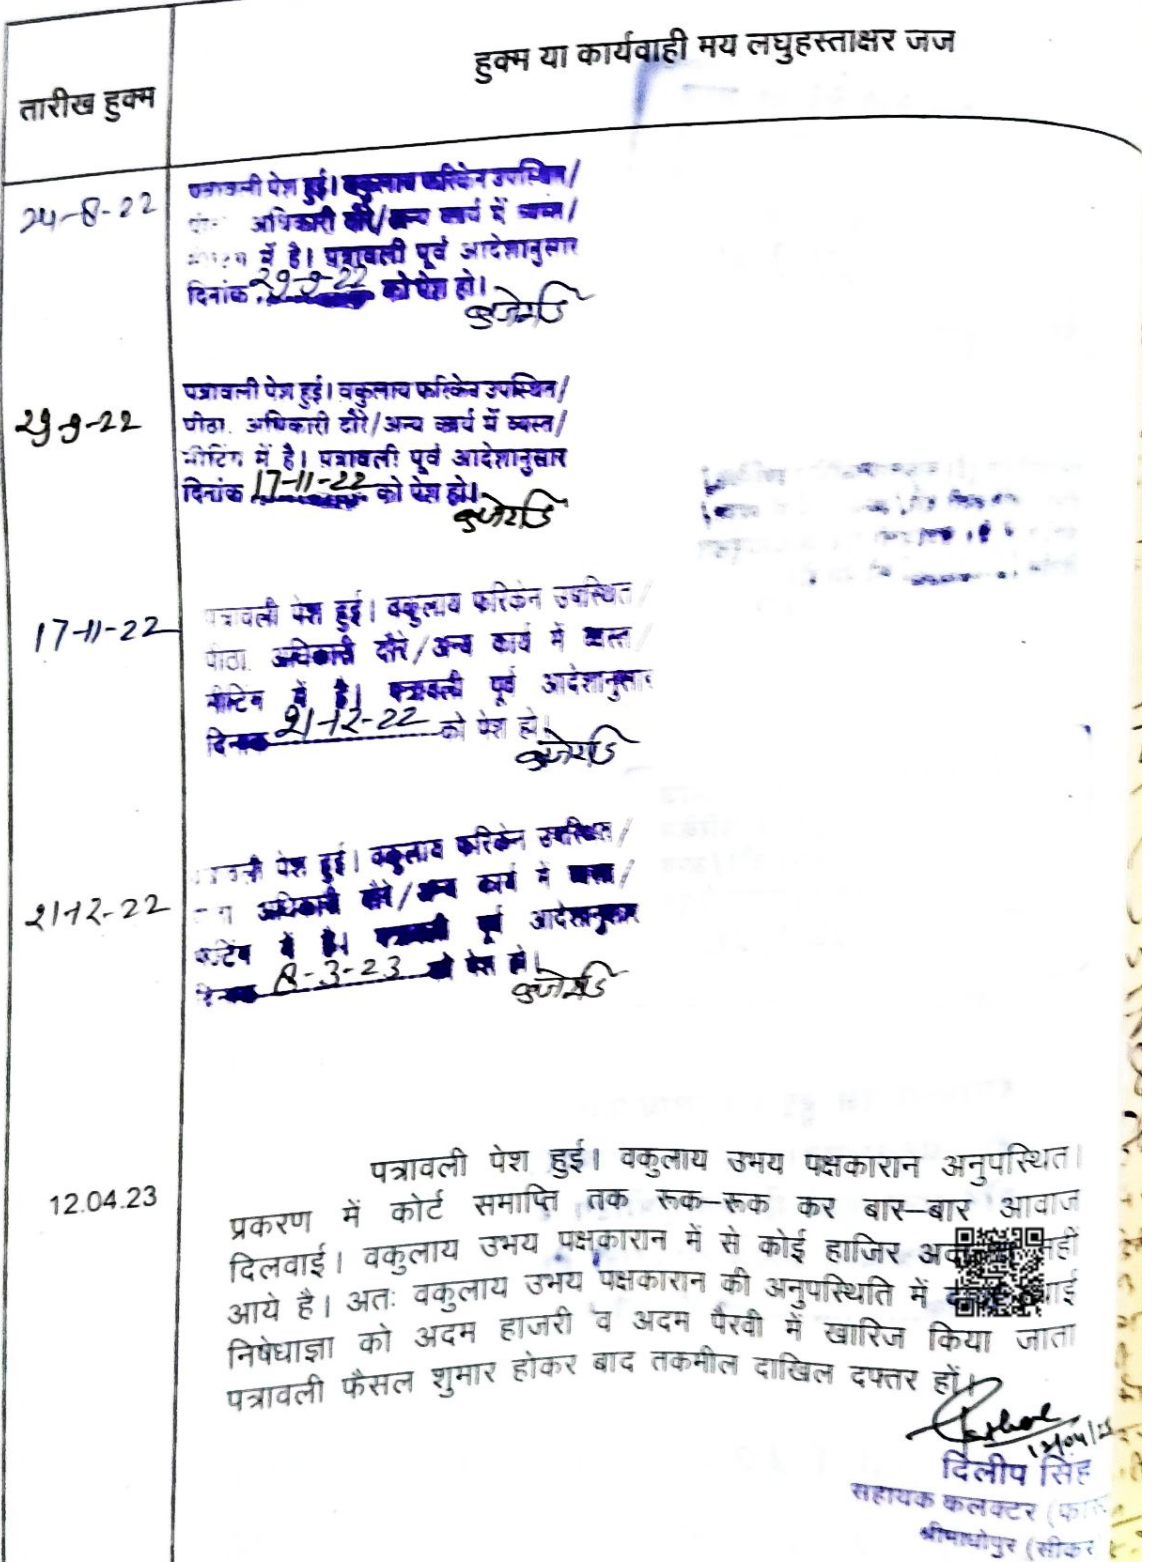 हुक्म या कार्यवाही मय लघुहस्ताक्षर जज
तारीख हुक्म
24-8-22
पत्रावली पेश हुई। वकुलाय फरिकेन उपस्थित/
अधिकारी दौरे/अन्य कार्य में व्यस्त/
में है। पत्रावली पूर्व आदेशानुसार
दिनांक 29-9-22 को पेश हो।
29-9-22
पत्रावली पेश हुई। वकुलाय फरिकेन उपस्थित/
पीठा. अधिकारी दौरे/अन्य कार्य में व्यस्त/
मीटिंग में है। पत्रावली पूर्व आदेशानुसार
दिनांक 17-11-22 को पेश हो।
17-11-22
पत्रावली पेश हुई। वकुलाय फरिकेन उपस्थित/
पीठा. अधिकारी दौरे/अन्य कार्य में व्यस्त/
मीटिंग में है। पत्रावली पूर्व आदेशानुसार
दिनांक 21-12-22 को पेश हो।
21-12-22
पत्रावली पेश हुई। वकुलाय फरिकेन उपस्थित/
अधिकारी दौरे/अन्य कार्य में व्यस्त/
मीटिंग में है। पत्रावली पूर्व आदेशानुसार
दिनांक 8-3-23 को पेश हो।
12.04.23
पत्रावली पेश हुई। वकुलाय उभय पक्षकारान अनुपस्थित।
प्रकरण में कोर्ट समाप्ति तक रूक–रूक कर बार–बार आवाज
दिलवाई। वकुलाय उभय पक्षकारान में से कोई हाजिर
आये है। अतः वकुलाय उभय पक्षकारान की अनुपस्थिति में
निषेधाज्ञा को अदम हाजरी व अदम पैरवी में खारिज किया जाता
पत्रावली फैसल शुमार होकर बाद तकमील दाखिल दफ्तर हों।
12/04/23
दिलीप सिंह
सहायक कलक्टर
श्रीमाधोपुर (सीकर